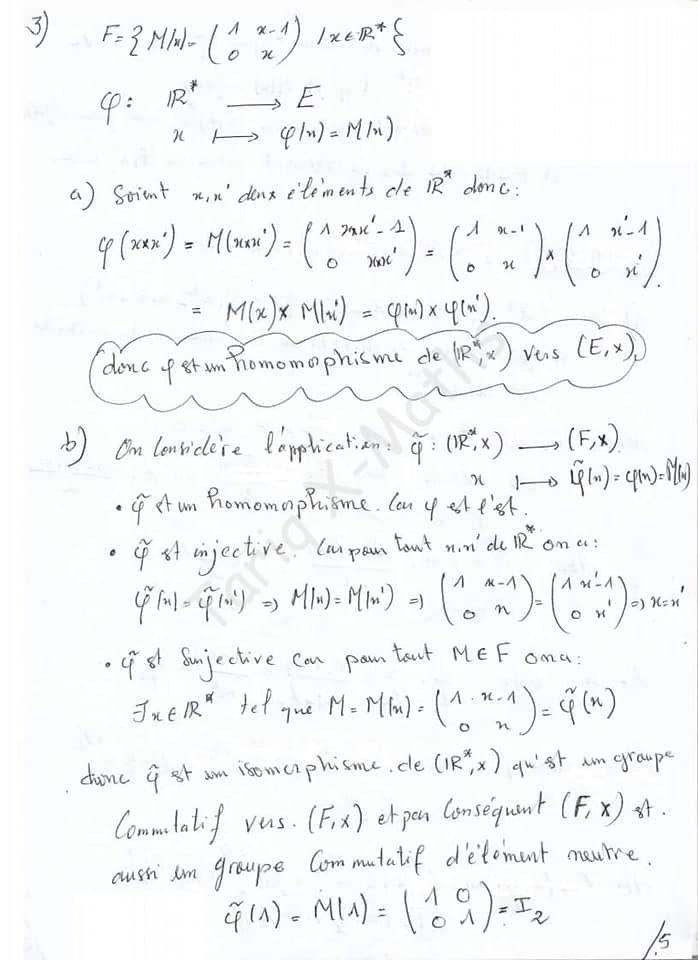 3) F = { M(x) = ( 1 x-1 / 0 x ) / x ∈ ℝ* {
φ : ℝ* ⟶ E
x ⟼ φ(x) = M(x)
a) Soient x, x' deux éléments de ℝ* donc :
φ(x×x') = M(x×x') = ( 1 x×x'-1 / 0 x×x' ) = ( 1 x-1 / 0 x ) × ( 1 x'-1 / 0 x' )
= M(x) × M(x') = φ(x) × φ(x').
donc φ est un homomorphisme de (ℝ*, ×) vers (E, ×).
b) On Considère l'application : φ̃ : (ℝ*, ×) ⟶ (F, ×)
x ⟼ φ̃(x) = φ(x) = M(x)
• φ̃ est un homomorphisme. Car φ est l'est.
• φ̃ est injective. Car pour tout x, x' de ℝ* on a :
φ̃(x) = φ̃(x') ⇒ M(x) = M(x') ⇒ ( 1 x-1 / 0 x ) = ( 1 x'-1 / 0 x' ) ⇒ x = x'
• φ̃ est Surjective car pour tout M ∈ F on a :
∃x ∈ ℝ* tel que M = M(x) = ( 1 x-1 / 0 x ) = φ̃(x)
donc φ̃ est un isomorphisme de (ℝ*, ×) qu'est un groupe
Commutatif vers (F, ×) et par Conséquent (F, ×) est
aussi un groupe Commutatif d'élément neutre.
φ̃(1) = M(1) = ( 1 0 / 0 1 ) = I₂
/.5
Tariq X-Maths